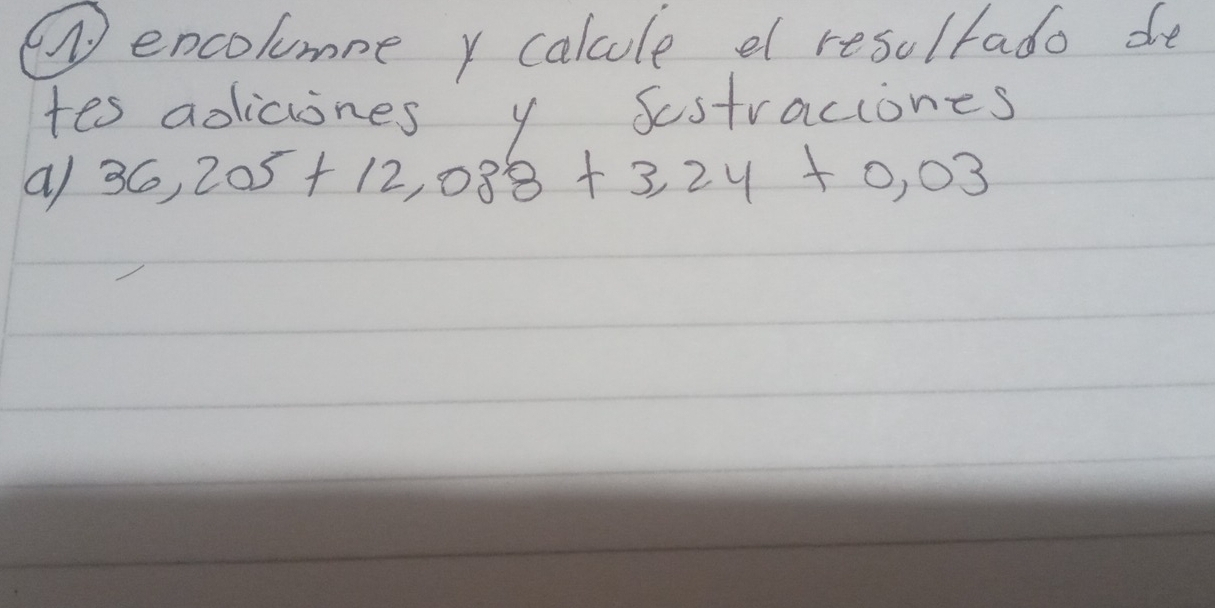 1. encolumne y calcule el resultado de
tes adiciones y Sustraciones
a) 36,205 + 12,088 + 3,24 + 0,03